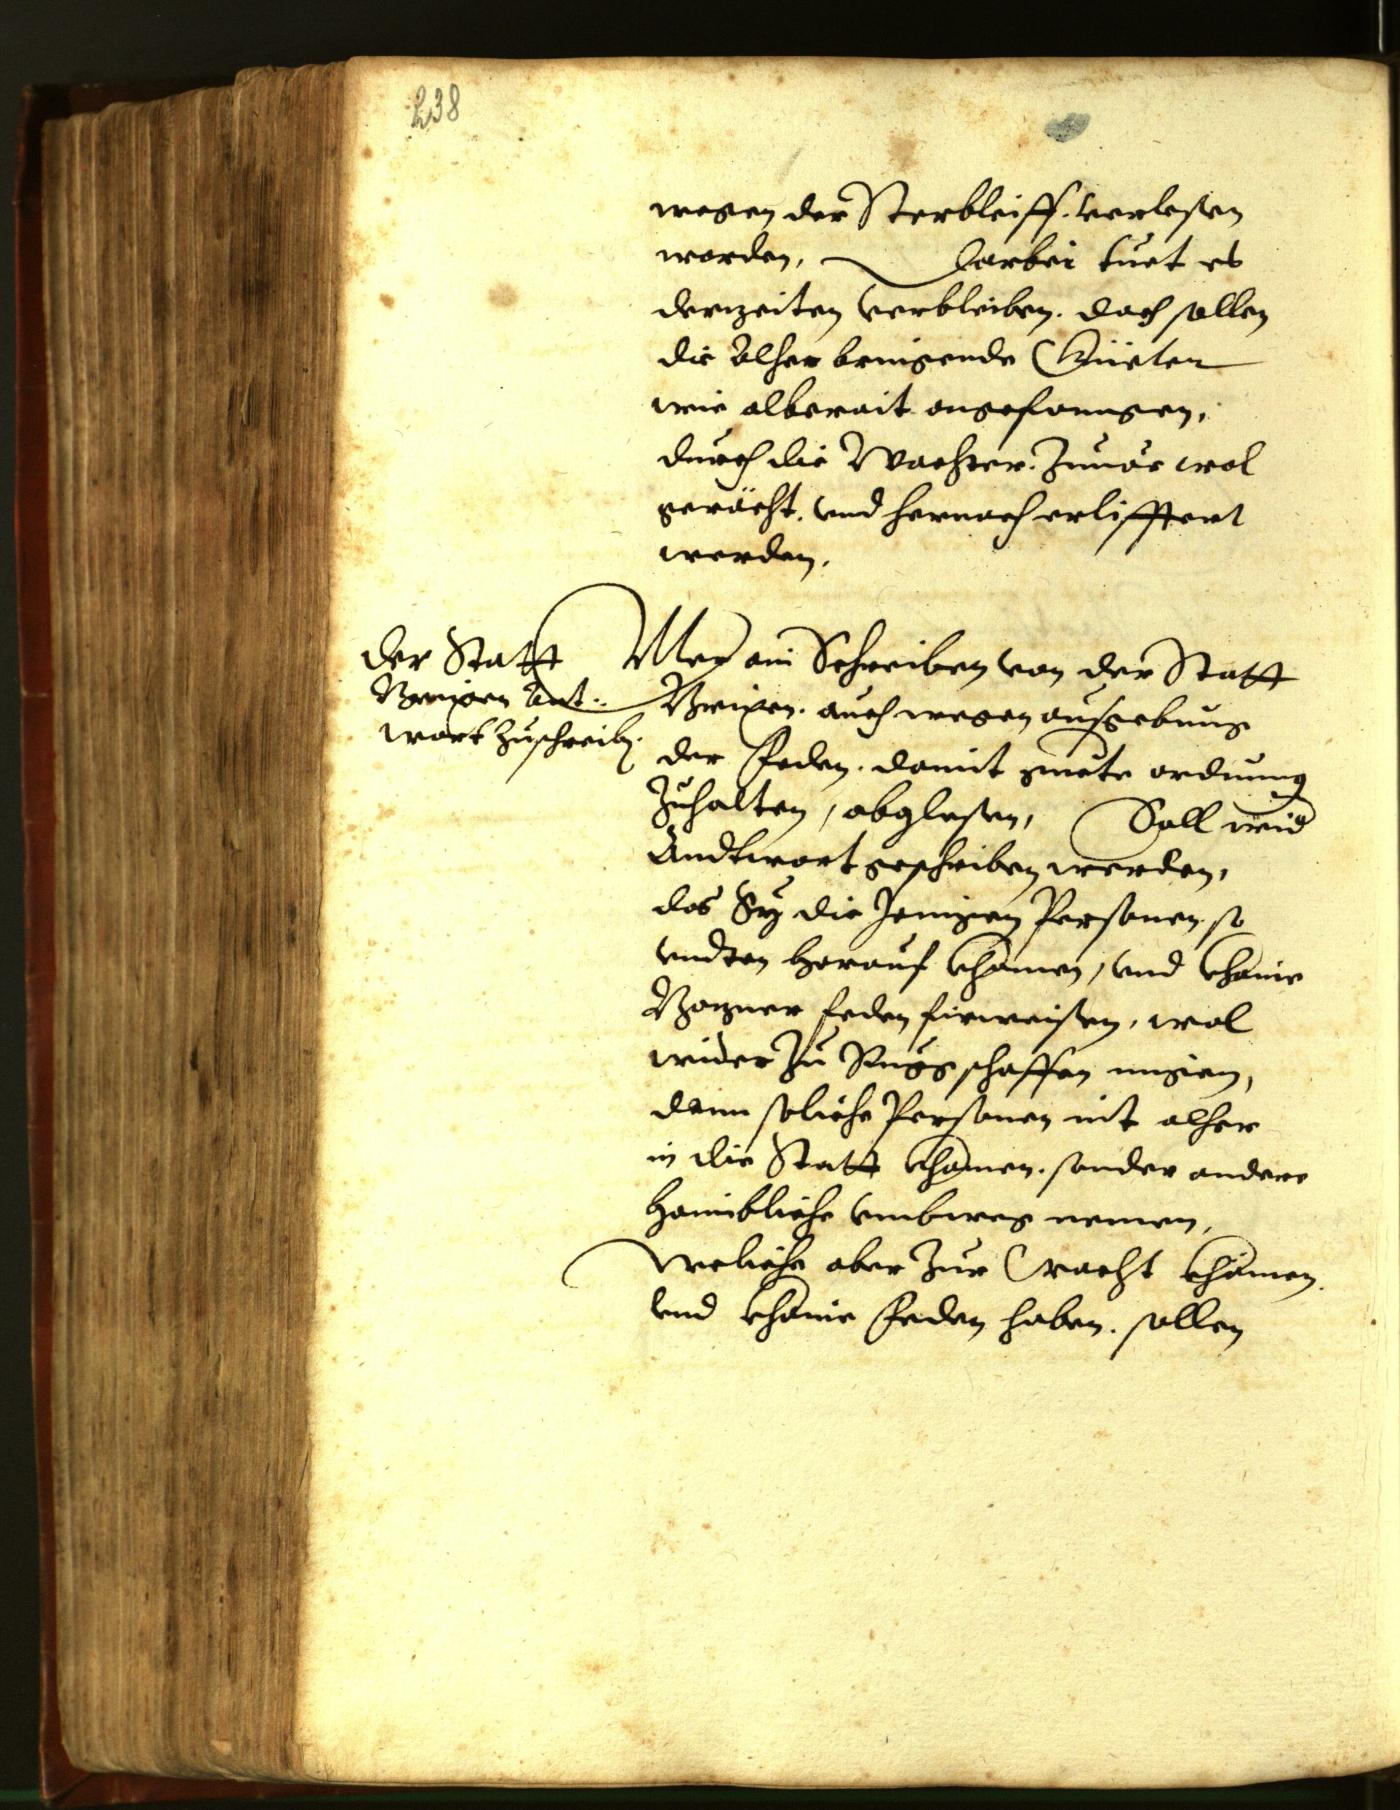 238
wegen der Sterbleiff. verlesen
worden, Darbei tuet es
derzeiten verbleiben. doch sollen
die alher bringende Güeter
wie alberait angefanngen,
durch die Wachter. zuuor wol
geräicht. vnd hernach erlifftert
werden.
der Statt
Brixen ant:
wort zuschreiben.
Mer ain Schreiben von der Statt
Brixen. auch wegen ausgebung
der Feden. damit guete ordnung
zuhalten, abglesen, Soll wid
Andtwort geschriben werden,
das Sy die Jenigen Personen so
vndten herauf khomen, vnd khaine
Bozner Feden fürweisen, wol
wider zu Rugg schaffen mügen,
dann soliche Personen nit alher
in die Statt khomen. sonder andere
haimbliche vmbweg nemen,
Weliche aber zur Wacht khomen
vnd khaine Feden haben. sollen